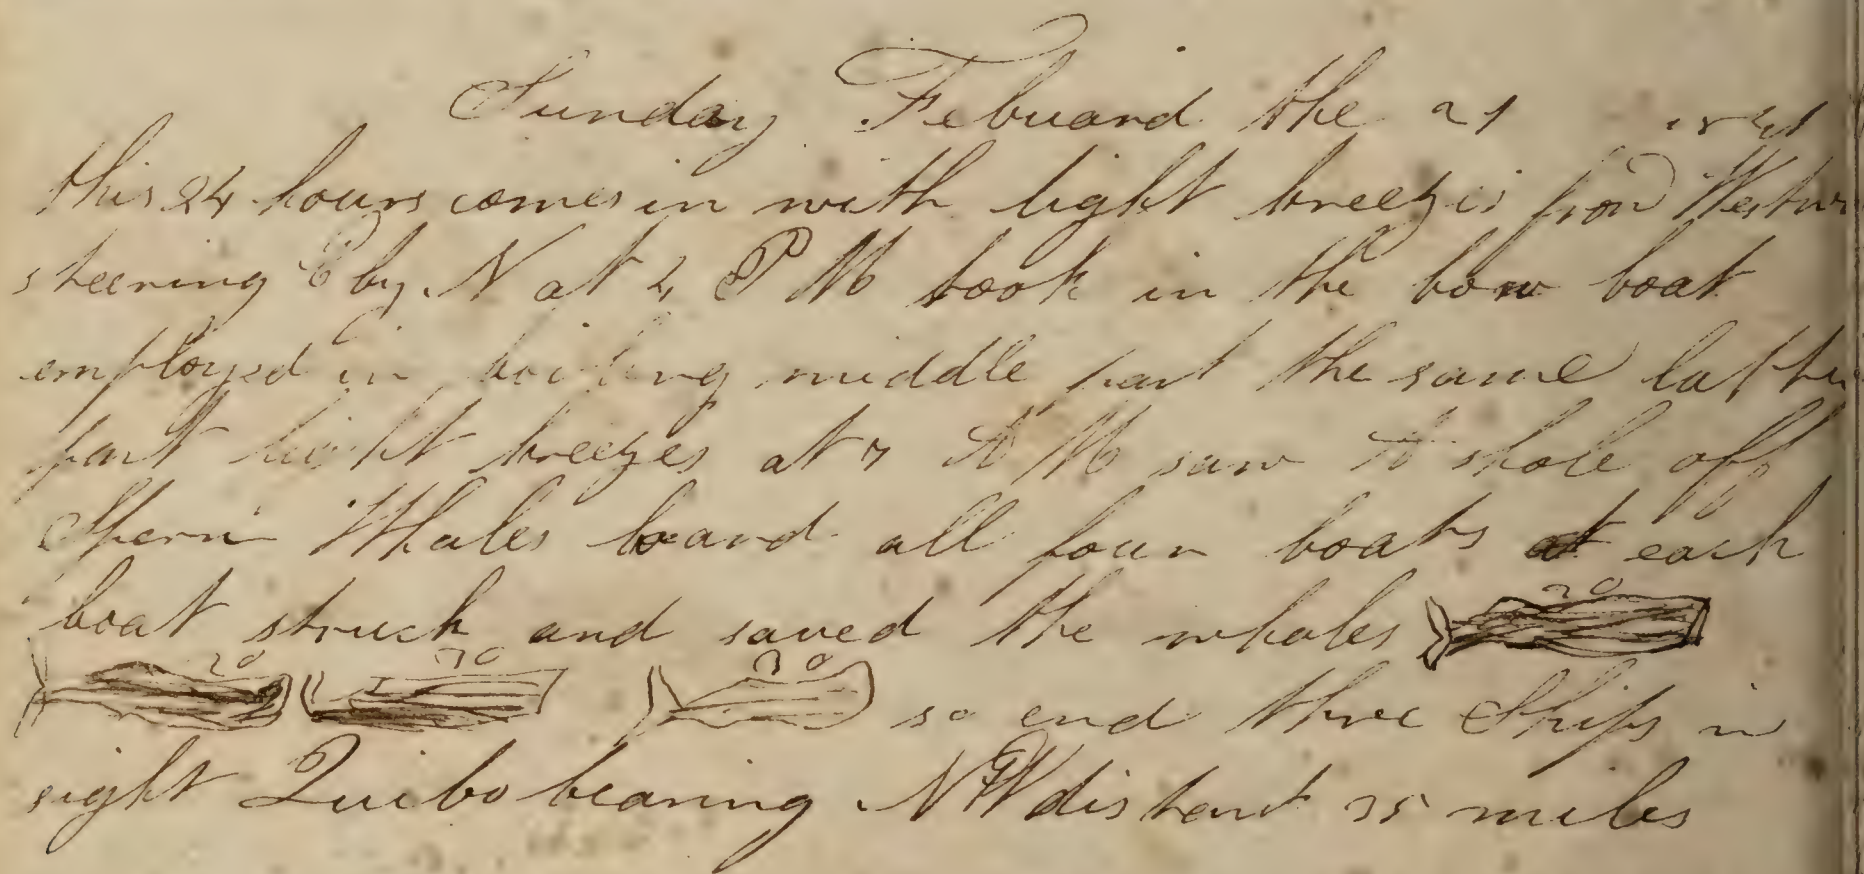 Sunday Febuard the 21
this 24 hours comes in with light breezes from Westw
steering E by N at 4 P M took in the bow boat
employed in boiling middle part the same latter
part light breezes at 7 A M saw A shole off
Sperm Whales loard all four boats at each
boat struck and saved the whales 20
20 30 30 so end three Ships in
sight Quibo bearing NW distant 35 miles